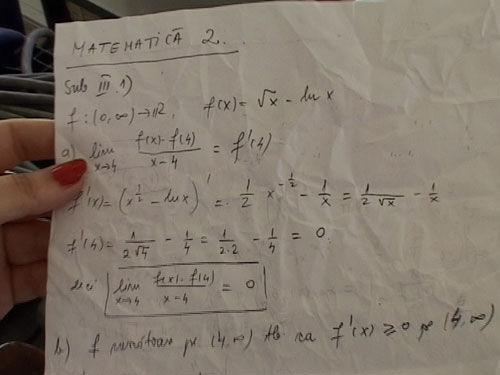 MATEMATICĂ 2.
Sub III.1)
f:(0,∞)→ℝ, f(x)=√x - ln x
a) lim x→4 (f(x)-f(4))/(x-4) = f'(4)
f'(x)=(x^(1/2) - ln x)' = 1/2 x^(-1/2) - 1/x = 1/(2√x) - 1/x
f'(4)= 1/(2√4) - 1/4 = 1/(2·2) - 1/4 = 0
deci lim x→4 (f(x)-f(4))/(x-4) = 0
b) f pe (4,∞) ca f'(x) ≥ 0 pe (4,∞)